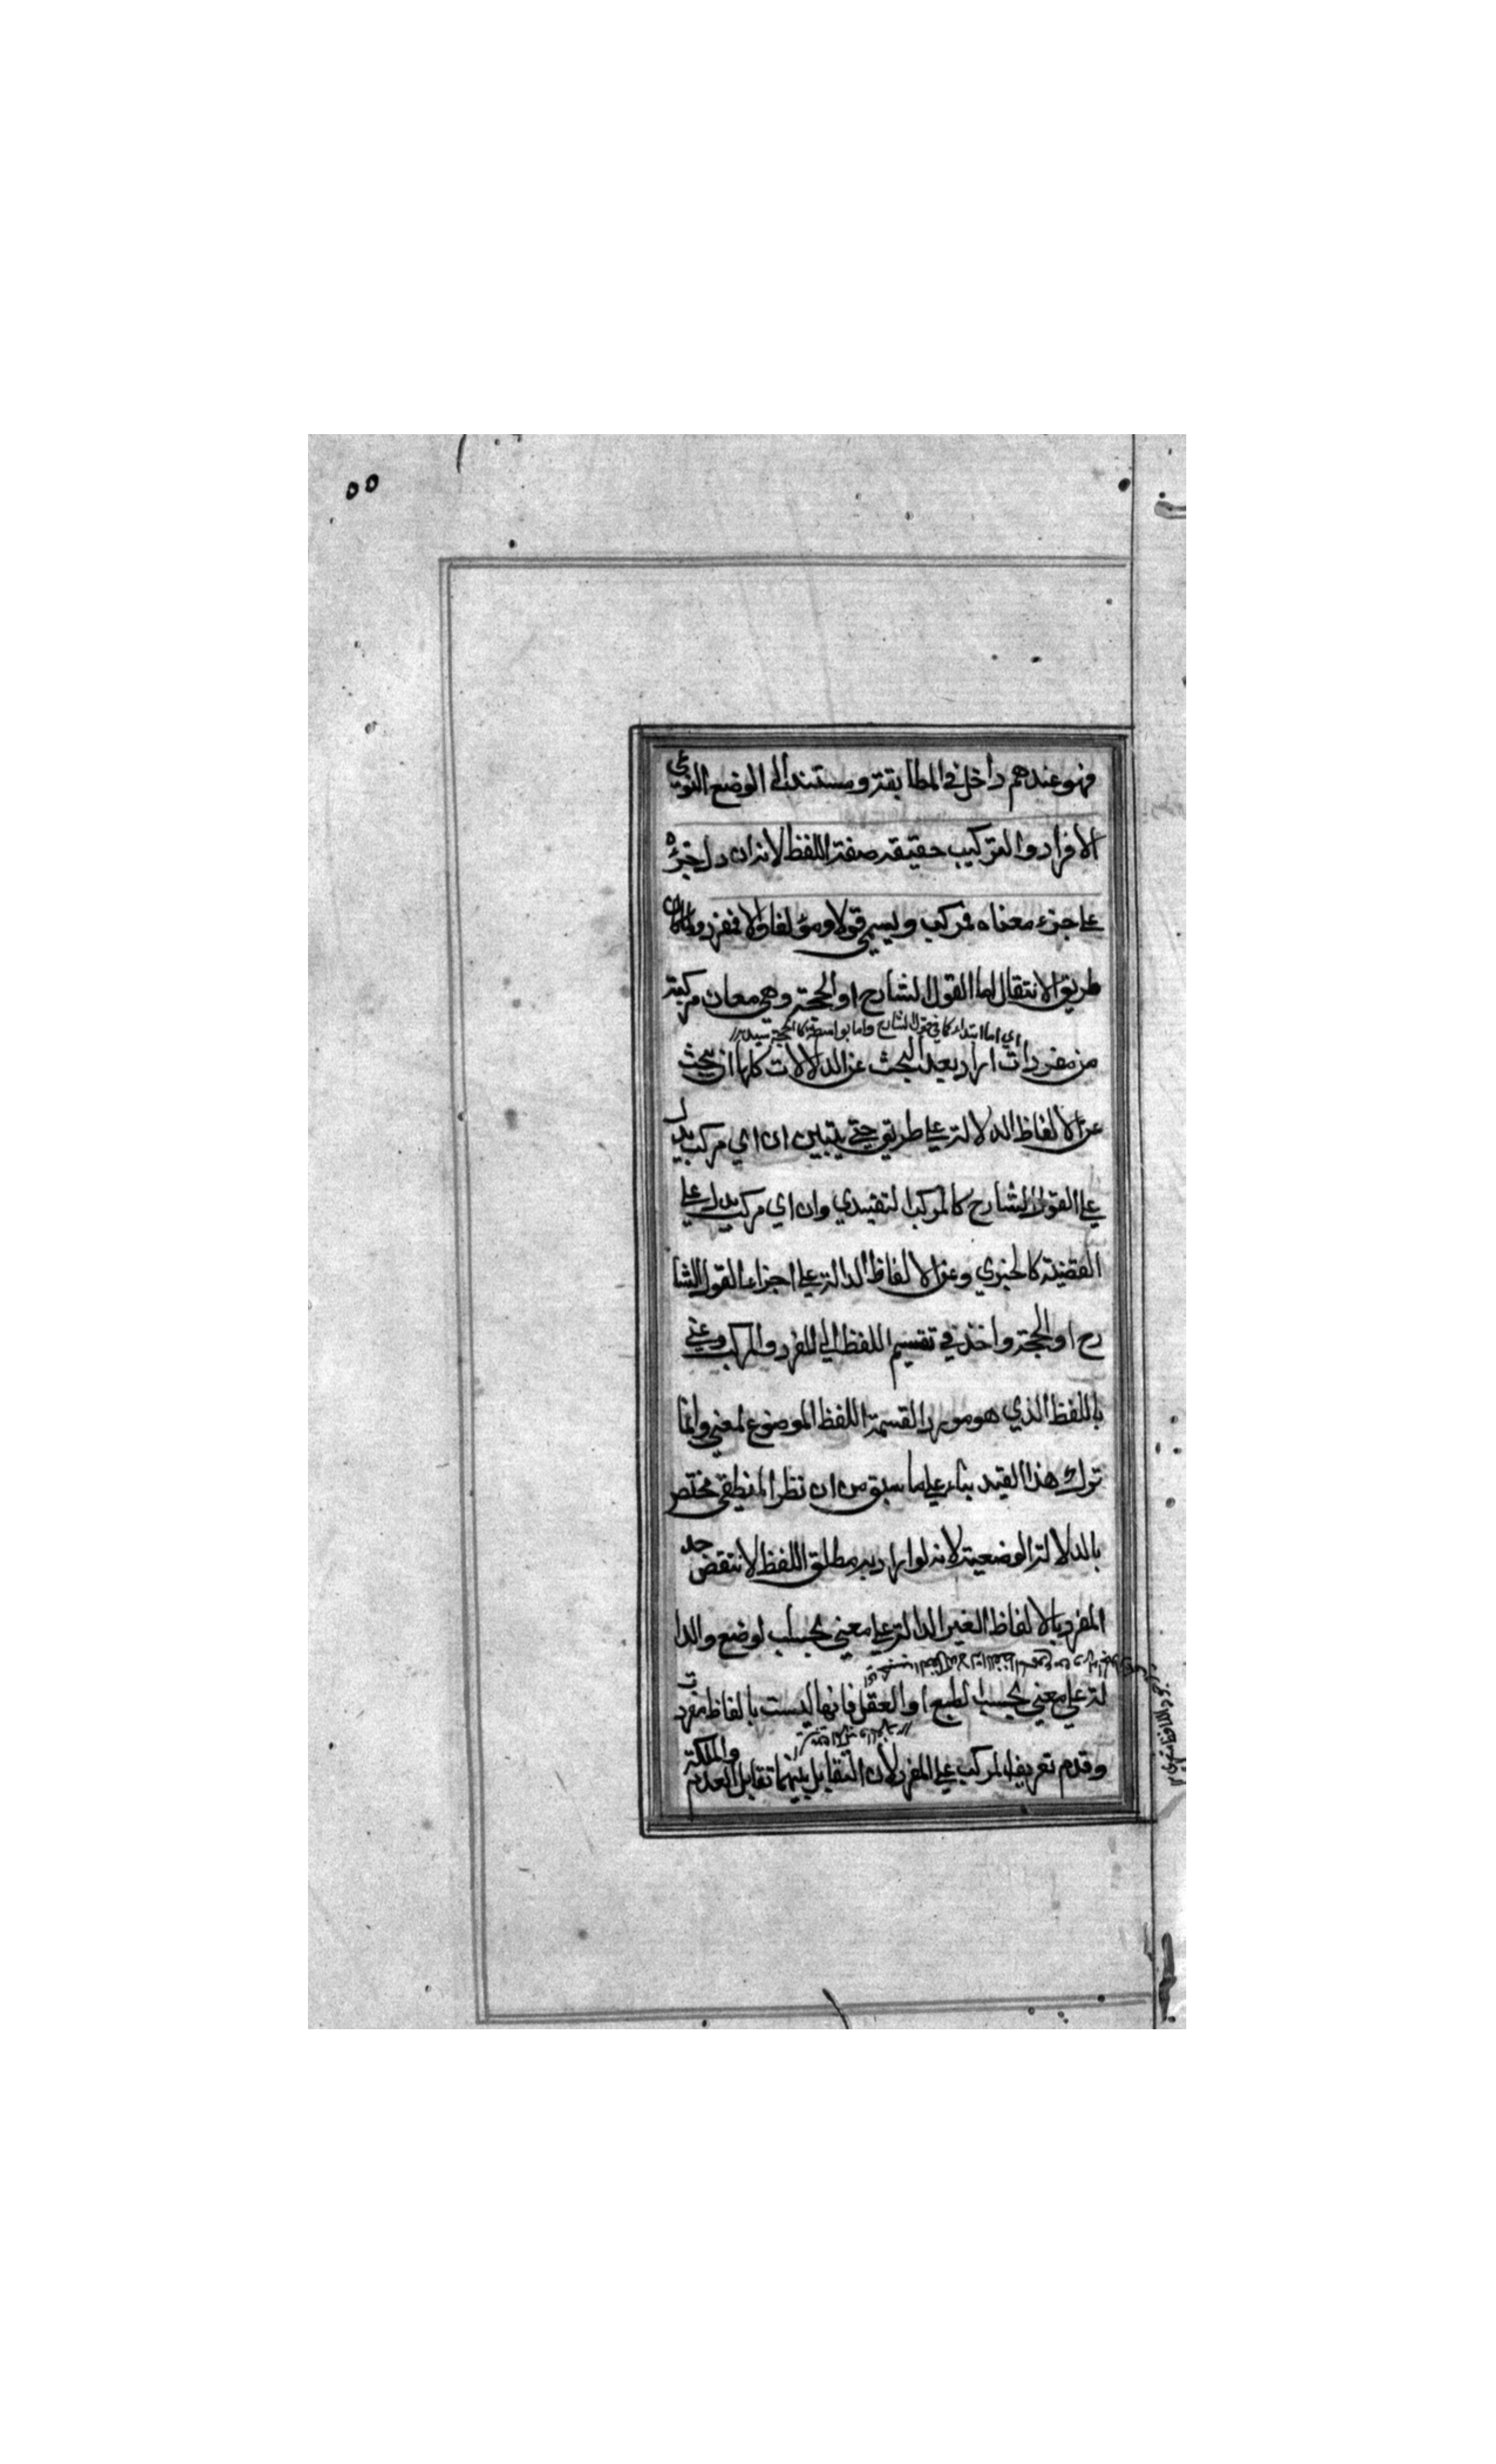 ٥٥
فهو عندهم داخل في المطابقة ومستند الى الوضع النوعي
الافراد والتركيب حقيقة صفة اللفظ لانه ان دل جزؤه
على جزء معناه فمركب ويسمى قولا ومؤلفا والا فمفرد ولما كان
طريق الانتقال اما القول الشارح او الحجة وهي معان مركبة
اي اما ابتداء كما في القول الشارح واما بواسطة كما في الحجة سيد
من مفردات اراد بعد البحث عن الدلالات كلها ان يبحث
عن الالفاظ الدلالة على طريق حتى يتبين ان اي مركب يدل
على القول الشارح كالمركب التقييدي وان اي مركب يدل على
القضية كالخبري وعن الالفاظ الدالة على اجزاء القول الشا
رح او الحجة واخذ في تقسيم اللفظ الى المفرد والمركب وعني
باللفظ الذي هو مورد القسمة اللفظ الموضوع لمعني وانما
ترك هذا القيد بناء على ما سبق من ان نظر المنطقي مختص
بالدلالة الوضعية لانه لو اراد به مطلق اللفظ لانتقض حد
المفرد بالالفاظ الغير الدالة على معني بحسب لوضع والدا
لة على معني بحسب الطبع او العقل فانها ليست بالفاظ مفردت
وقدم تعريف المركب على المفرد لان التقابل بينهما تقابل العدم والملكة